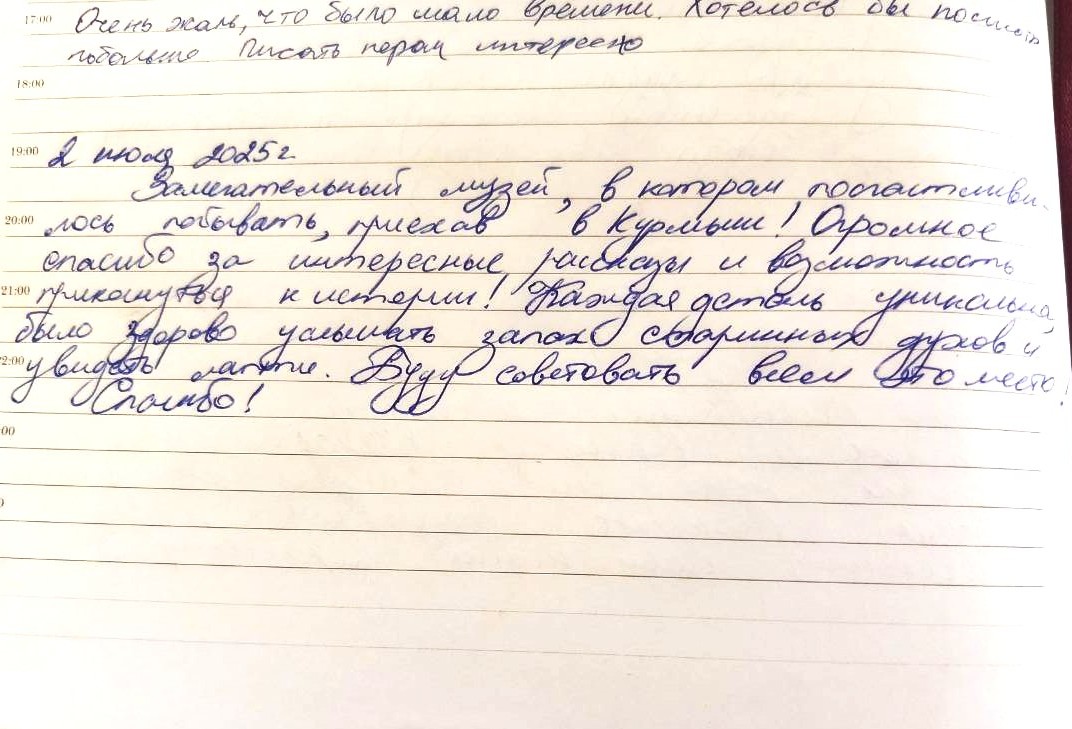 17:00 Очень жаль, что было мало времени. Хотелось бы
побольше. Писать пером интересно
18:00
19:00 2 июля 2025 г.
Замечательный музей, в котором посчастливи-
20:00 лось побывать, приехав в Курмыш! Огромное
спасибо за интересные рассказы и возможность
21:00 прикоснуться к истории! Каждая деталь уникальна,
было здорово услышать запах старинных духов и
22:00 увидеть лапти. Буду советовать всем это место!
Спасибо!
:00